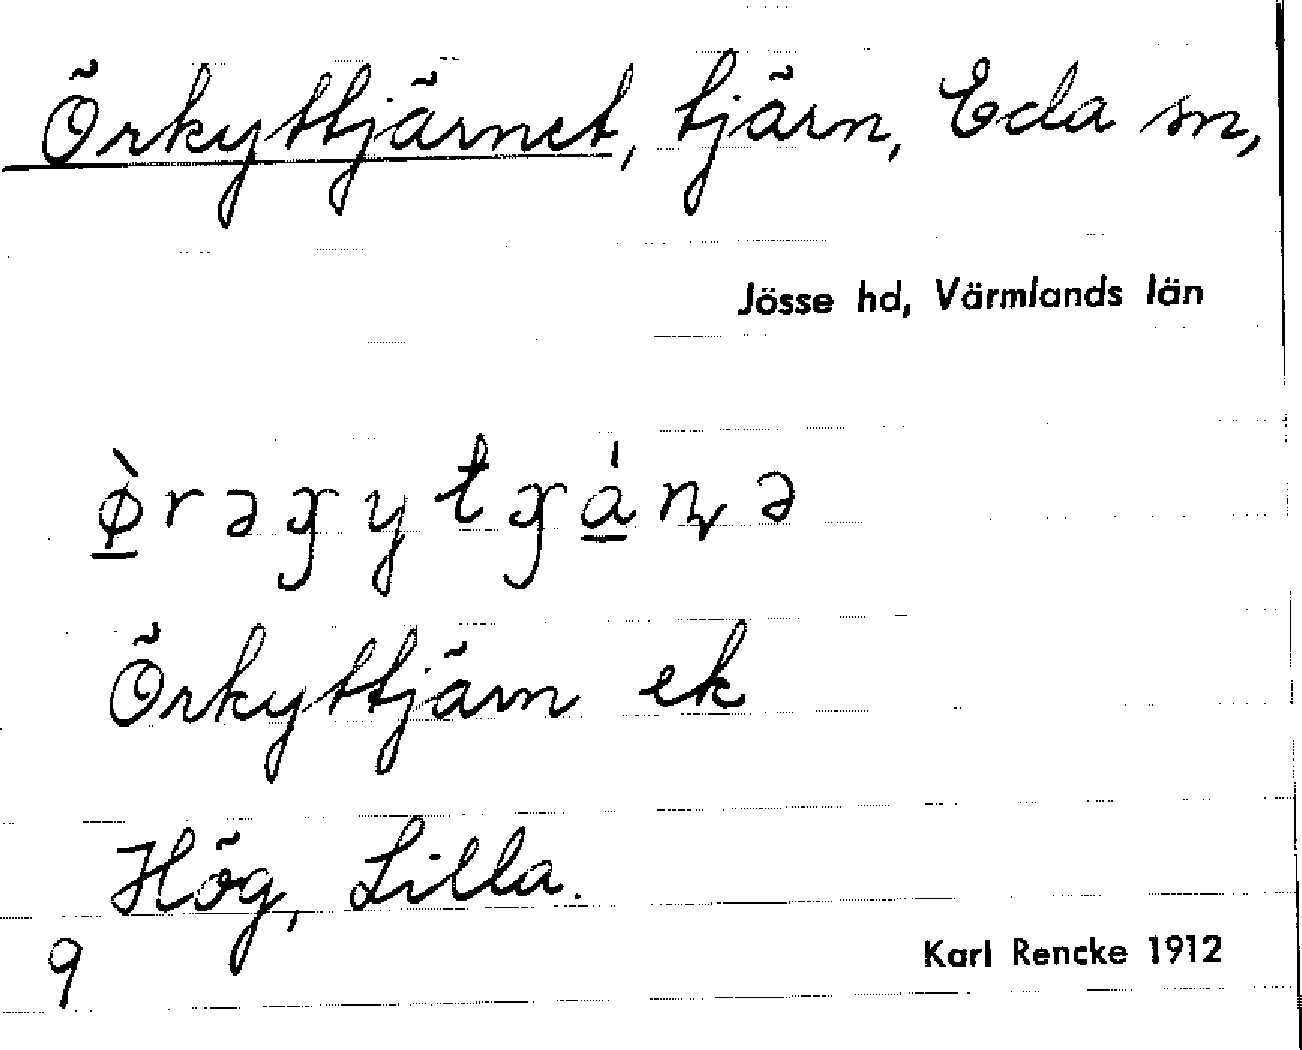 Örkyttjärnet, tjärn, Eda sn,
Jösse hd, Värmlands län
ø̲̀rəɣytɣá̲ɳə
Örkyttjärn ek
Hög, Lilla.
9
Karl Rencke 1912